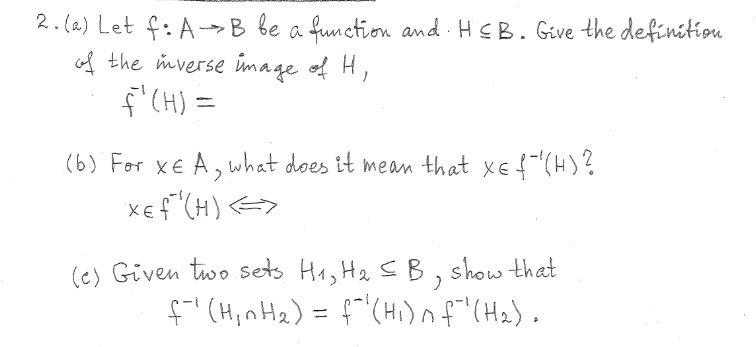 2.(a) Let f: A → B be a function and H ⊆ B. Give the definition
of the inverse image of H,
f⁻¹(H) =
(b) For x ∈ A, what does it mean that x ∈ f⁻¹(H)?
x ∈ f⁻¹(H) ⟺
(c) Given two sets H₁, H₂ ⊆ B, show that
f⁻¹(H₁ ∩ H₂) = f⁻¹(H₁) ∩ f⁻¹(H₂).